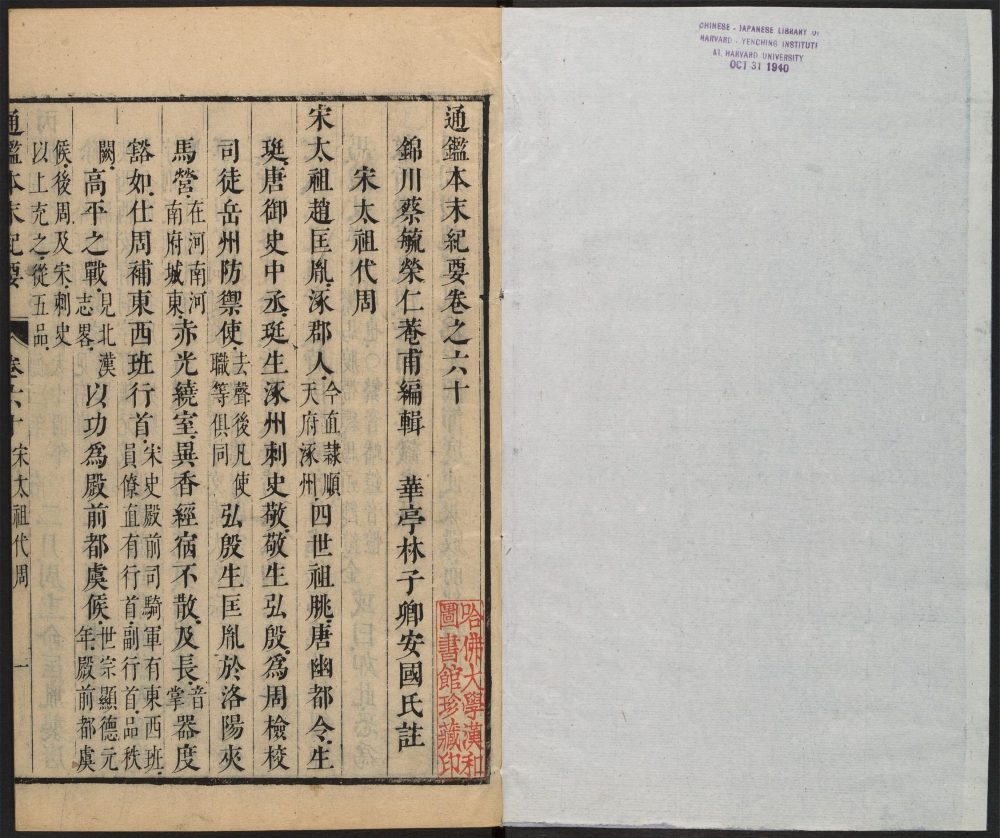 CHINESE - JAPANESE LIBRARY OF
HARVARD - YENCHING INSTITUTE
AT HARVARD UNIVERSITY
OCT 31 1940
通鑑本末紀要卷之六十
錦川蔡毓榮仁菴甫編輯 華亭林子卿安國氏註
哈佛大學漢和
圖書館珍藏印
宋太祖代周
宋太祖趙匡胤涿郡人今直隸順天府涿州四世祖朓唐幽都令生
珽唐御史中丞珽生涿州刺史敬敬生弘殷為周檢校
司徒岳州防禦使去聲後凡使職等俱同弘殷生匡胤於洛陽夾
馬營在河南河南府城東赤光繞室異香經宿不散及長音掌器度
豁如仕周補東西班行首宋史殿前司騎軍有東西班員僚直有行首副行首品秩
闕高平之戰見北漢志畧以功為殿前都虞候世宗顯德元年殿前都虞
候後周及宋刺史以上充之從五品
通鑑本末紀要 卷六十 宋太祖代周 一